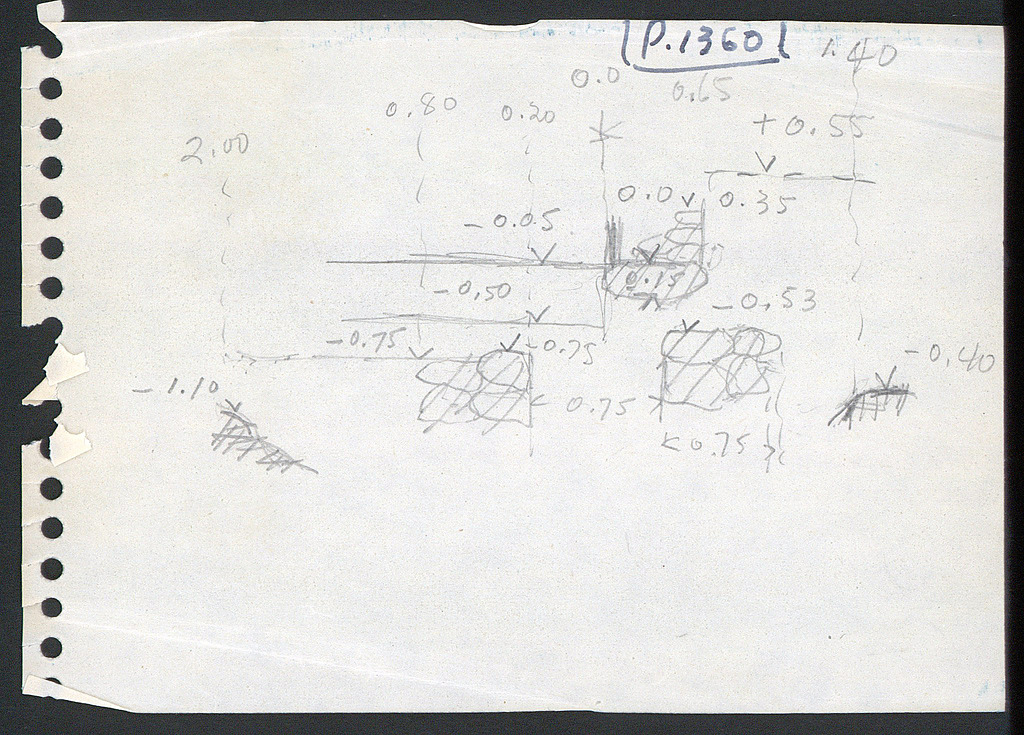 P.1360
1.40
0.0
0.65
0.80
0.20
2.00
+0.55
0.0
0.35
-0.05
0.15
-0.50
-0.53
-0.75
-0.75
-0.40
-1.10
0.75
<0.75